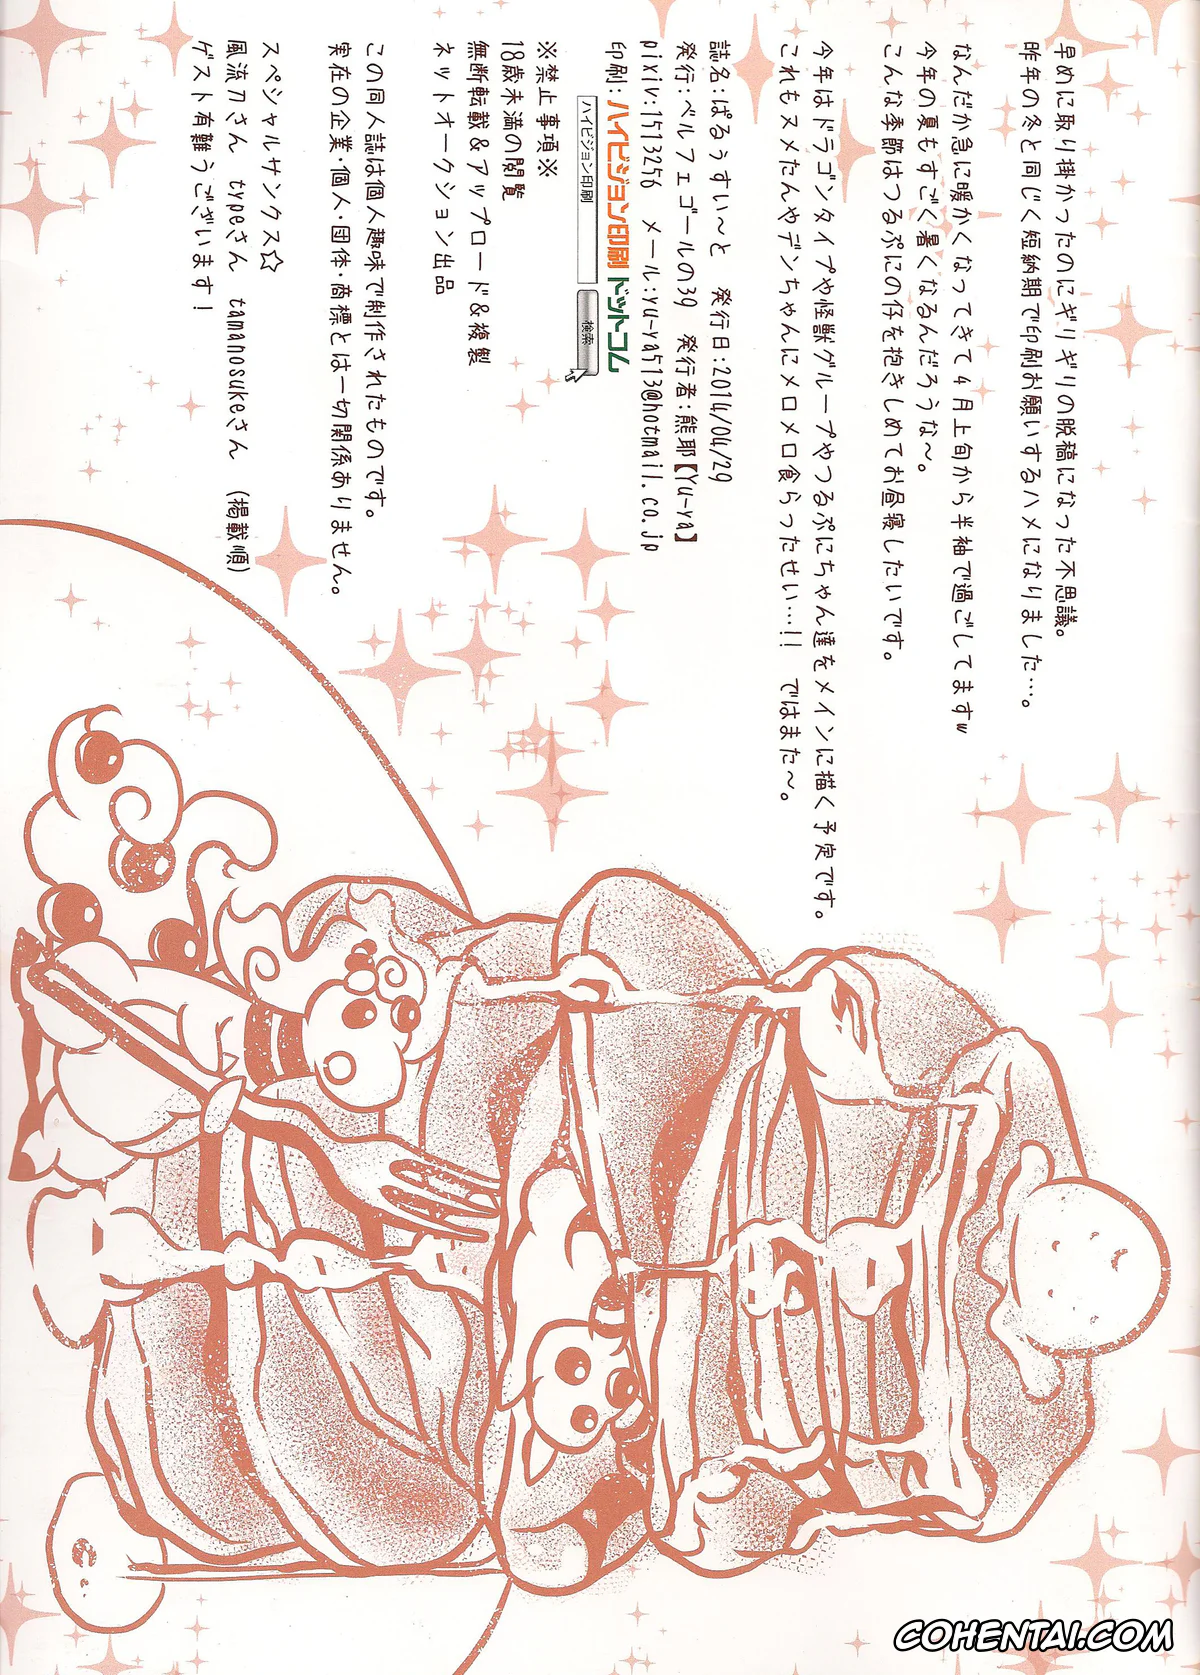 早めに取り掛かったのにギリギリの脱稿になった不思議。
昨年の冬と同じく短納期で印刷お願いするハメになりました…。
なんだか急に暖かくなってきて4月上旬から半袖で過ごしてますw
今年の夏もすごく暑くなるんだろうな〜。
こんな季節はつるぷにの仔を抱きしめてお昼寝したいです。
今年はドラゴンタイプや怪獣グループやつるぷにちゃん達をメインに描く予定です。
これもヌメたんやデンちゃんにメロメロ食らったせい…!! ではまた〜。
誌名:ぱるぅすい〜と 発行日:2014/04/29
発行:ベルフェゴールの39 発行者:熊耶【Yu-ya】
pixiv:1513256 メール:yu-ya513@hotmail.co.jp
印刷:ハイビジョン印刷ドットコム
ハイビジョン印刷 検索
※禁止事項※
18歳未満の閲覧
無断転載&アップロード&複製
ネットオークション出品
この同人誌は個人趣味で制作されたものです。
実在の企業・個人・団体・商標とは一切関係ありません。
スペシャルサンクス☆
風流刀さん typeさん tamanosukeさん (掲載順)
ゲスト有難うございます!
COHENTAI.COM